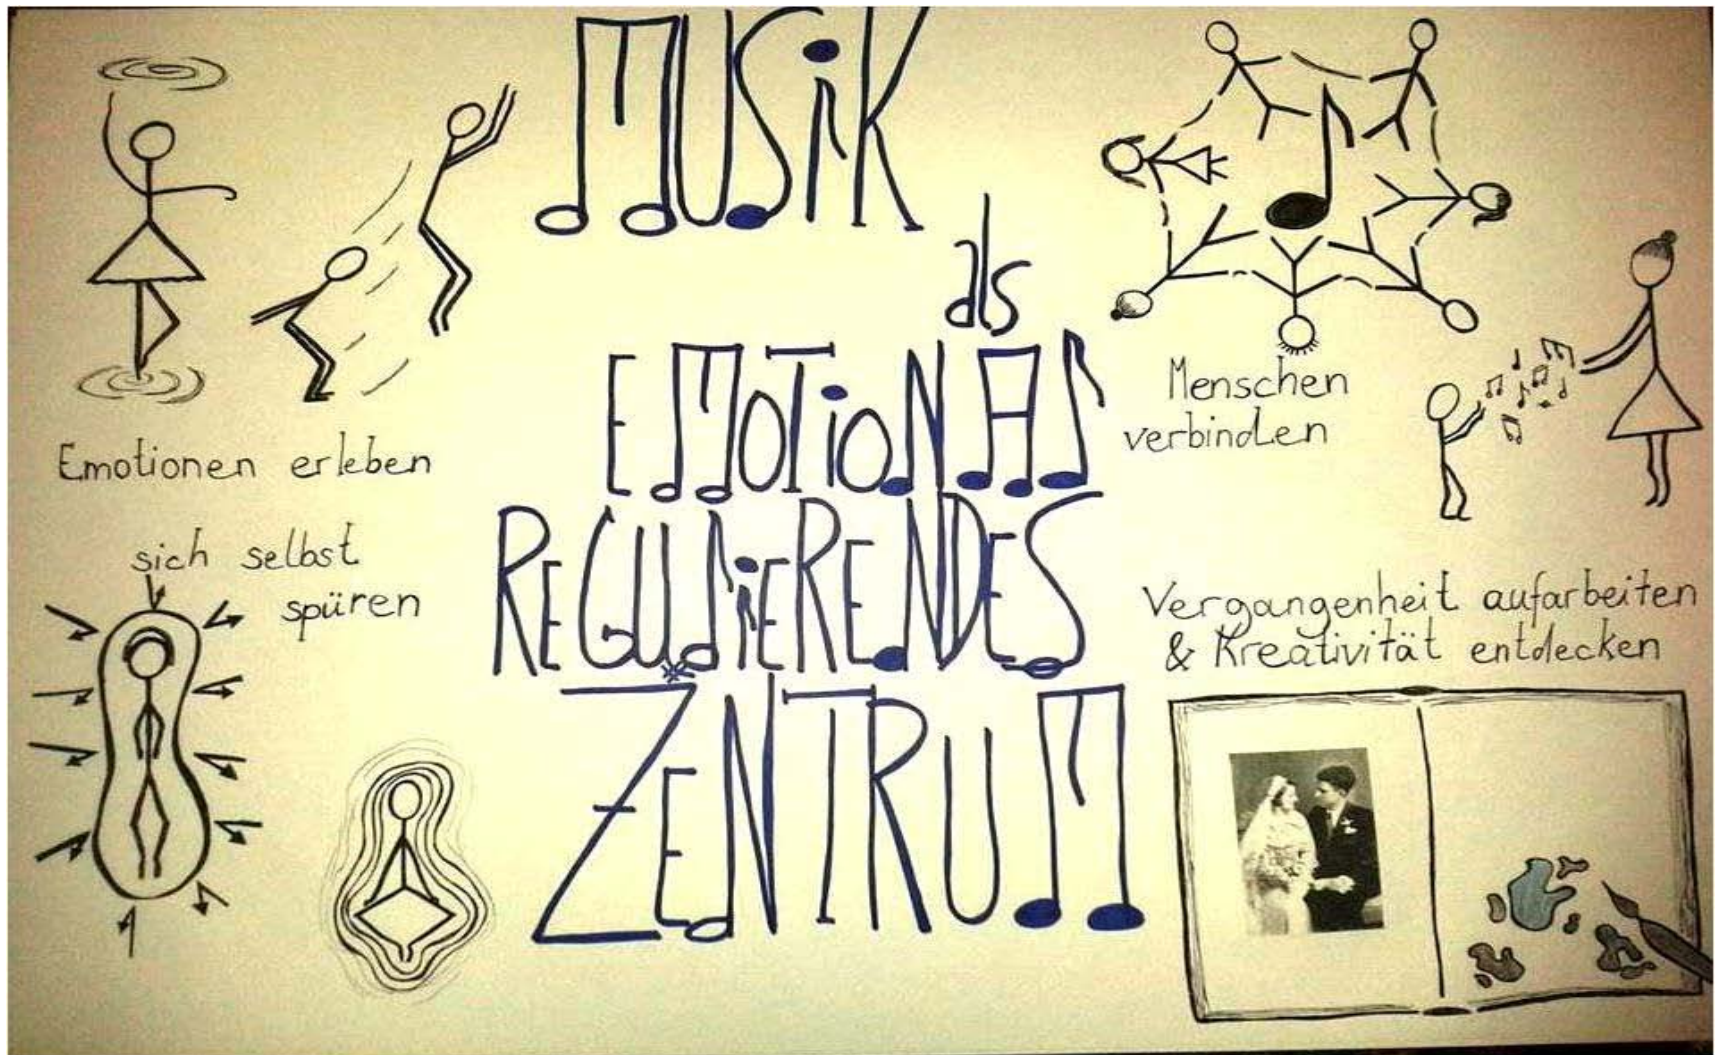 MUSiK
als
EMOTiONAL
REGULiERENDES
ZENTRUM
Emotionen erleben
sich selbst
spüren
Menschen
verbinden
Vergangenheit aufarbeiten
& Kreativität entdecken